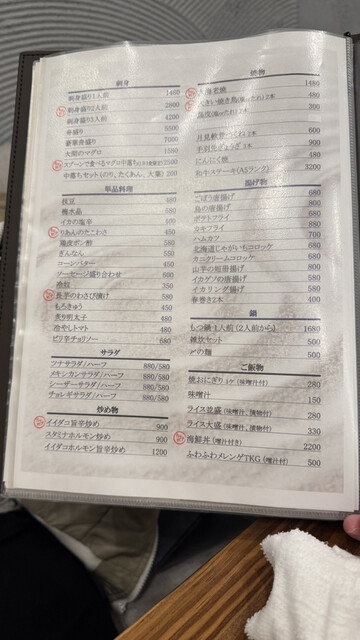 刺身
刺身盛り1人前 1480
刺身盛り2人前 2800
刺身盛り3人前 4200
舟盛り 5500
豪華舟盛り 7000
大間のマグロ 1500
スプーンで食べるマグロ中落ち 2500
中落ちセット(のり、たくあん、大葉) 300
単品料理
枝豆 480
イカの塩辛 480
りあんのたこわさ 450
鶏皮ポン酢 580
ぎんなん 550
コーンバター 450
ソーセージ盛り合わせ 600
冷奴 350
長芋のわさび漬け 580
もろきゅう 450
炙り明太子 480
冷やしトマト 480
ピリ辛チョリソー 680
サラダ
ツナサラダ/ハーフ 880/580
メキシカンサラダ/ハーフ 880/580
シーザーサラダ/ハーフ 880/580
チョレギサラダ/ハーフ 880/580
炒め物
イイダコ旨辛炒め 900
スタミナホルモン炒め 900
イイダコホルモン旨辛炒め 1200
焼物
1480
480
300
月見軟骨つくね 2本 600
手羽先ぎょうざ 2本 900
にんにく焼 480
和牛ステーキ(A5ランク) 3200
揚げ物
ごぼう唐揚げ 680
鳥の唐揚げ 680
ポテトフライ 680
カキフライ 880
ハムカツ 700
北海道じゃがいもコロッケ 680
カニクリームコロッケ 680
山芋の短冊揚げ 680
イカゲソの唐揚げ 580
イカリング揚げ 580
春巻き2本 400
鍋
もつ鍋 1人前(2人前から) 1680
雑炊セット 500
〆の麺 500
ご飯物
焼おにぎり 1ケ(味噌汁付) 280
味噌汁 150
ライス並盛(味噌汁、漬物付) 280
ライス大盛(味噌汁、漬物付) 330
海鮮丼(味噌汁付き) 2200
ふわふわメレンゲTKG(味噌汁付) 500